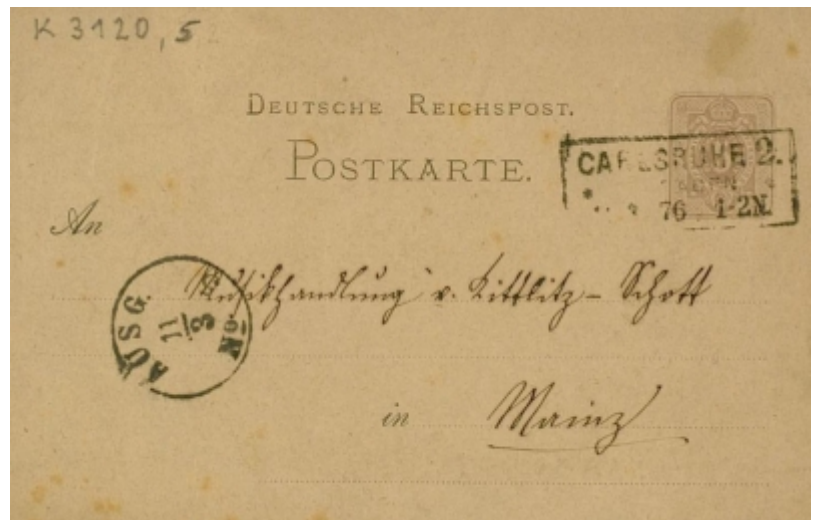 K 3120, 5
DEUTSCHE REICHSPOST.
POSTKARTE.
CARLSRUHE 2.
76 1-2N.
An
Musikhandlung v. Kittlitz-Schott
AUSG.
11/3
No 1
in Mainz